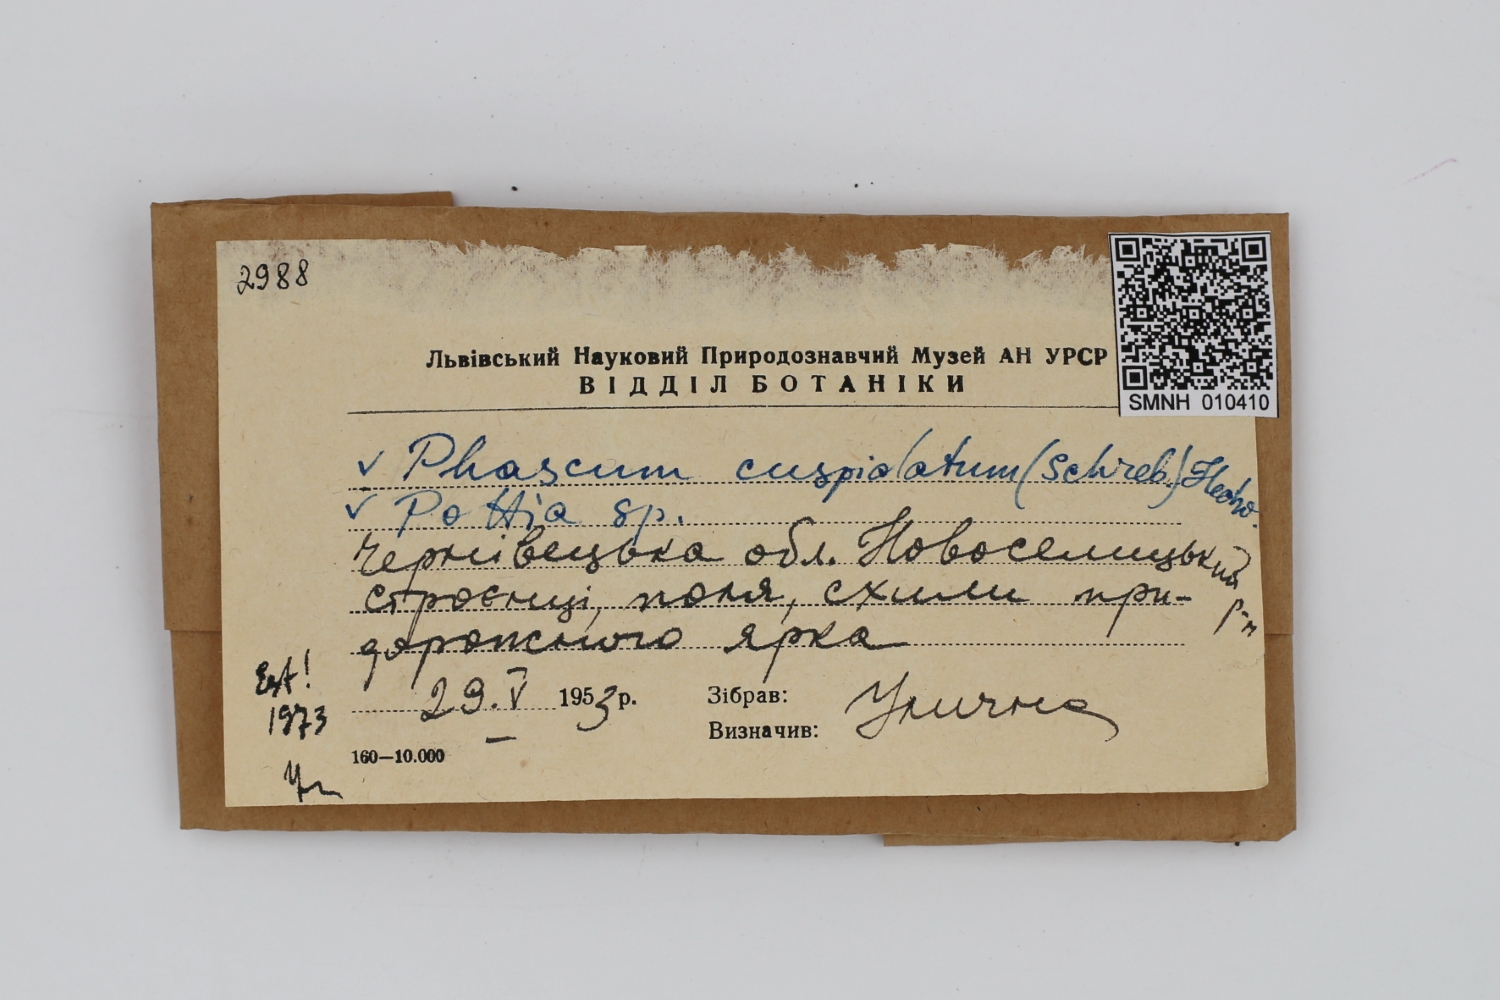 2988
Львівський Науковий Природознавчий Музей АН УРСР
ВІДДІЛ БОТАНІКИ
SMNH 010410
✓ Phascum cuspidatum (Schreb.) Hedw.
✓ Pottia sp.
Чернівецька обл. Новоселицький р-н
строєнці, поля, схили при-
дорожнього ярка
Est!
1973
29.V 1953 р.
Зібрав: Улична
Визначив:
160—10.000
Ул